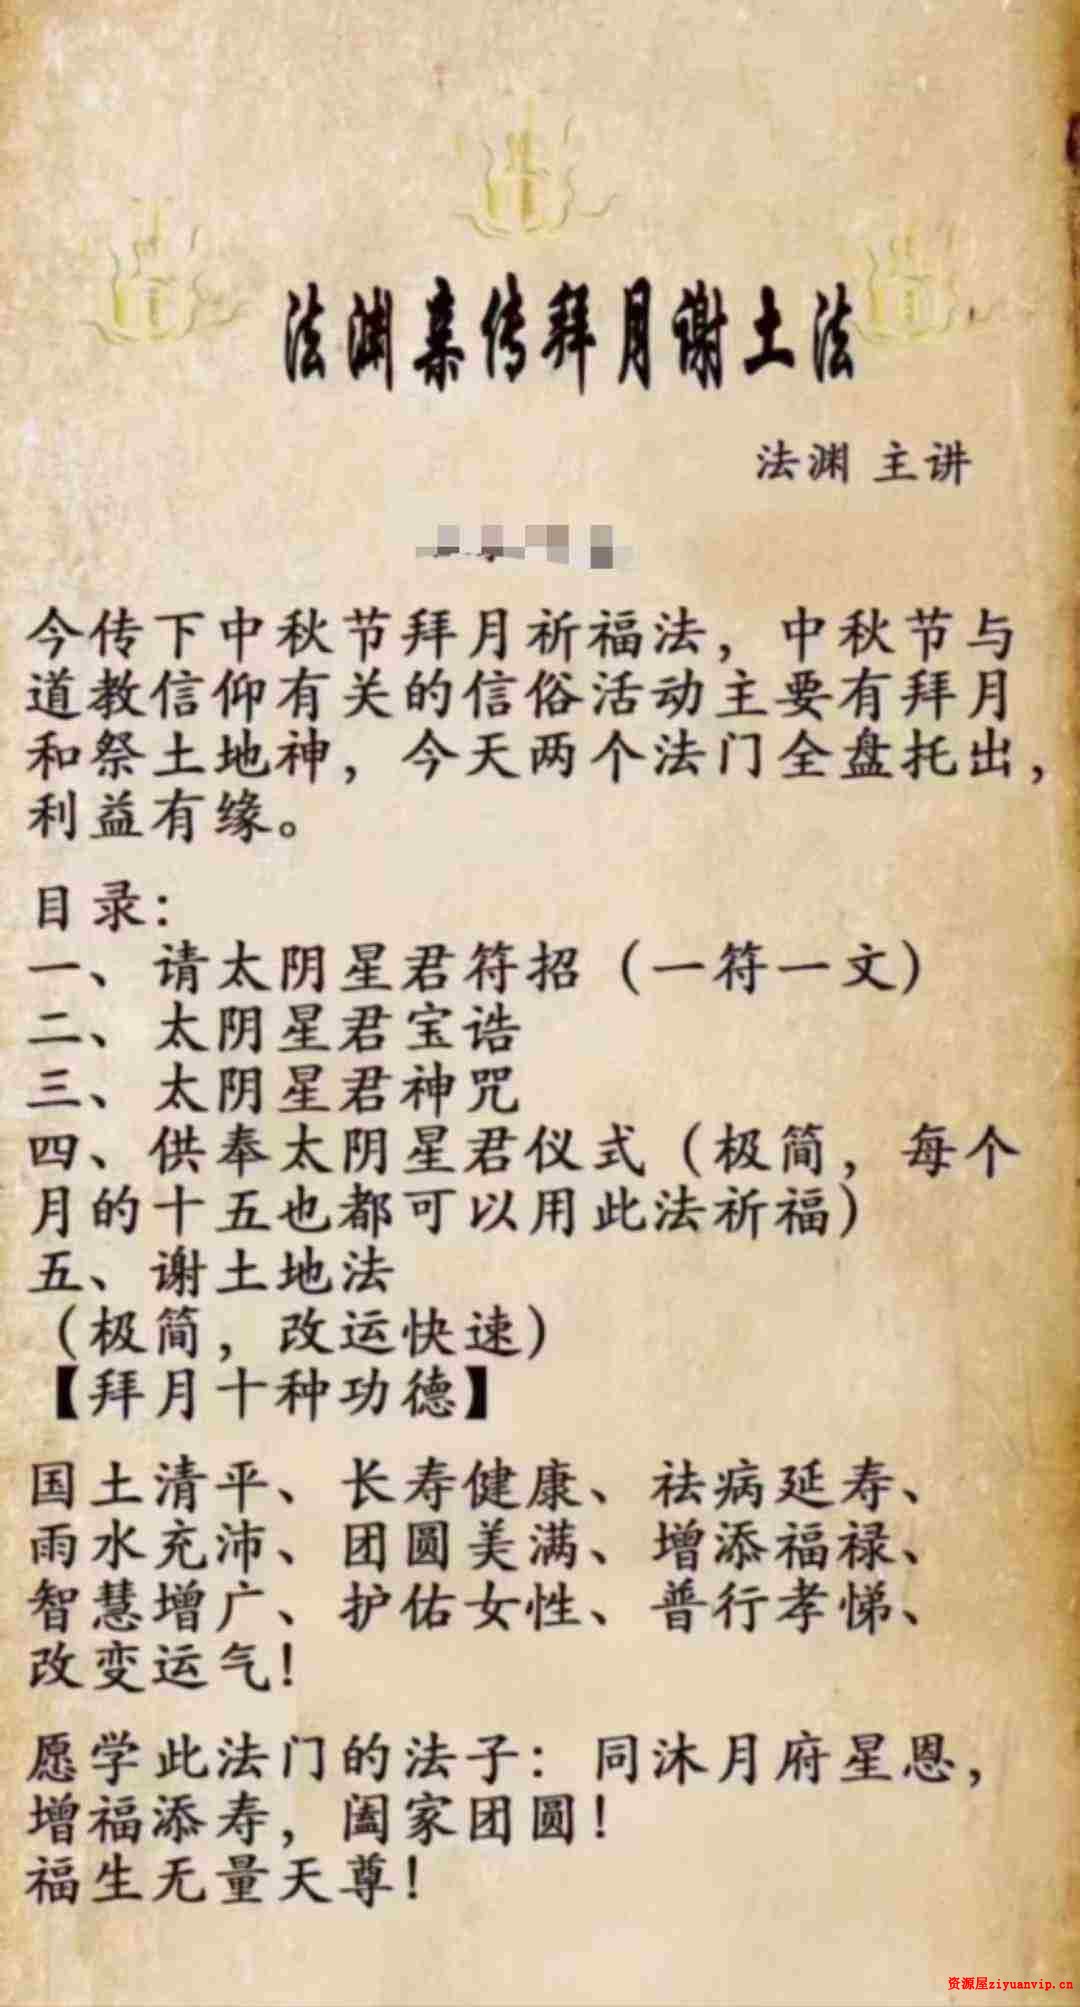 法渊亲传拜月谢土法
法渊 主讲
今传下中秋节拜月祈福法，中秋节与
道教信仰有关的信俗活动主要有拜月
和祭土地神，今天两个法门全盘托出，
利益有缘。
目录：
一、请太阴星君符招（一符一文）
二、太阴星君宝诰
三、太阴星君神咒
四、供奉太阴星君仪式（极简，每个
月的十五也都可以用此法祈福）
五、谢土地法
（极简，改运快速）
【拜月十种功德】
国土清平、长寿健康、祛病延寿、
雨水充沛、团圆美满、增添福禄、
智慧增广、护佑女性、普行孝悌、
改变运气！
愿学此法门的法子：同沐月府星恩，
增福添寿，阖家团圆！
福生无量天尊！
资源屋ziyuanvip.cn